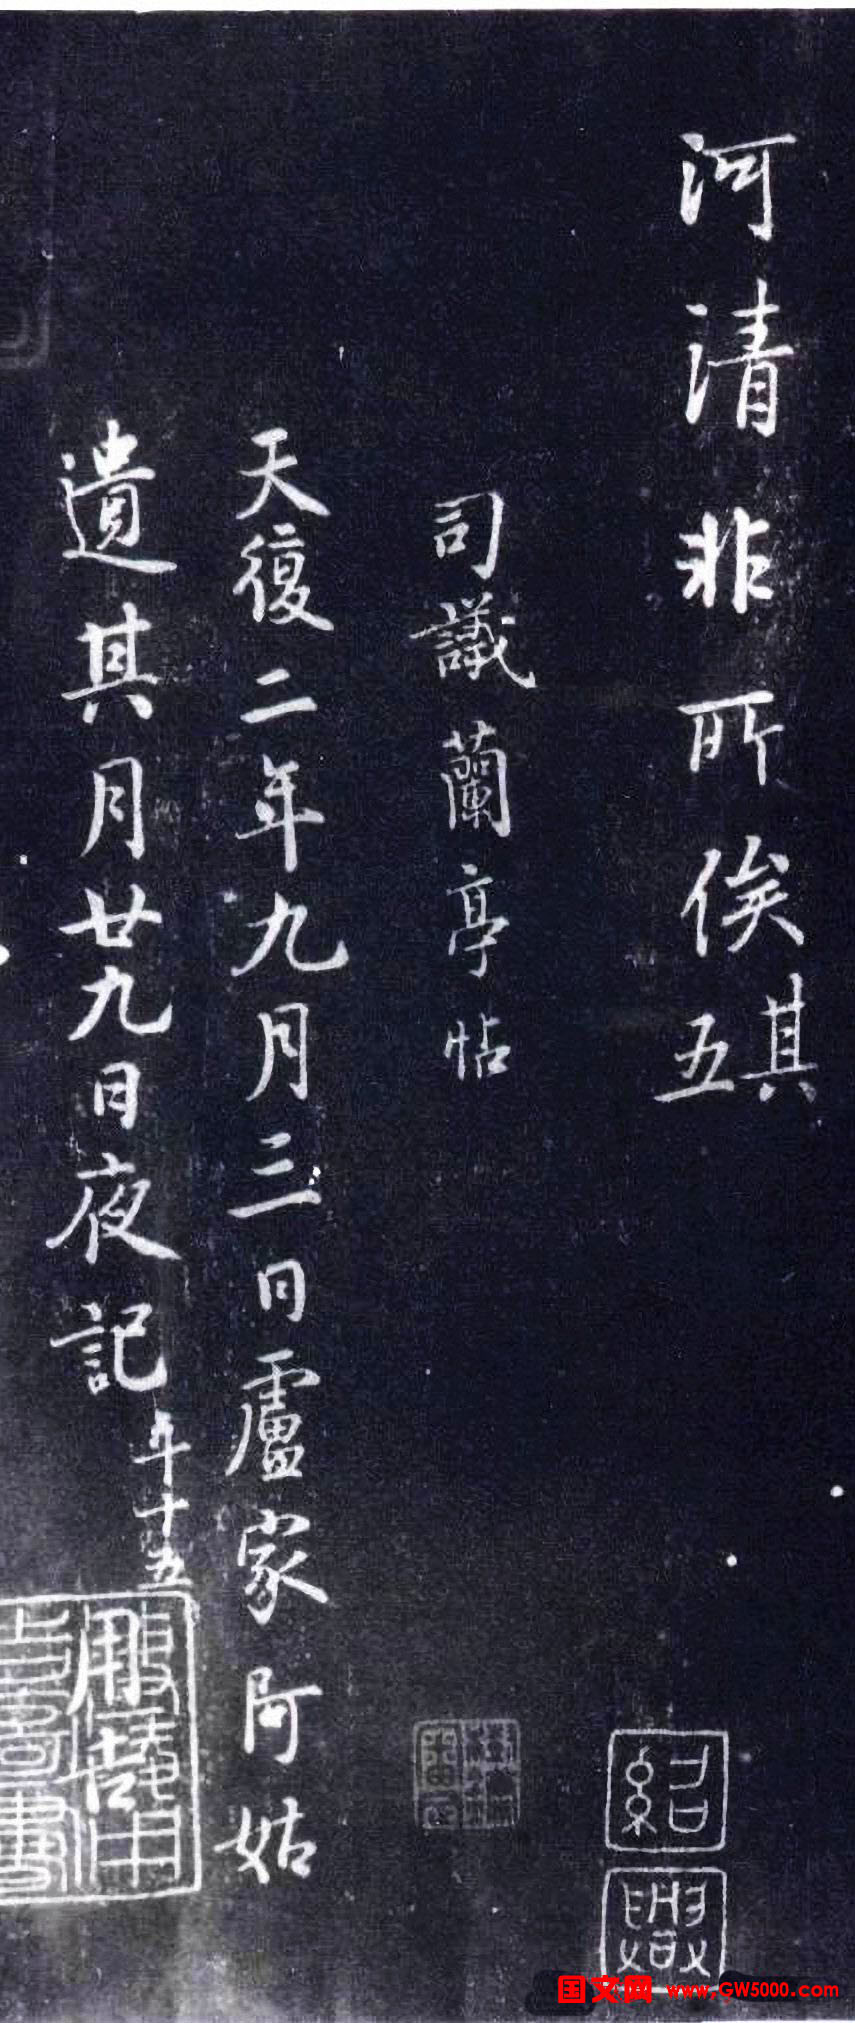 河清非所俟其五
司議蘭亭帖
天復二年九月三日盧家阿姑
遺其月廿九日夜記年十五
紹興
国文网 www.GW5000.com